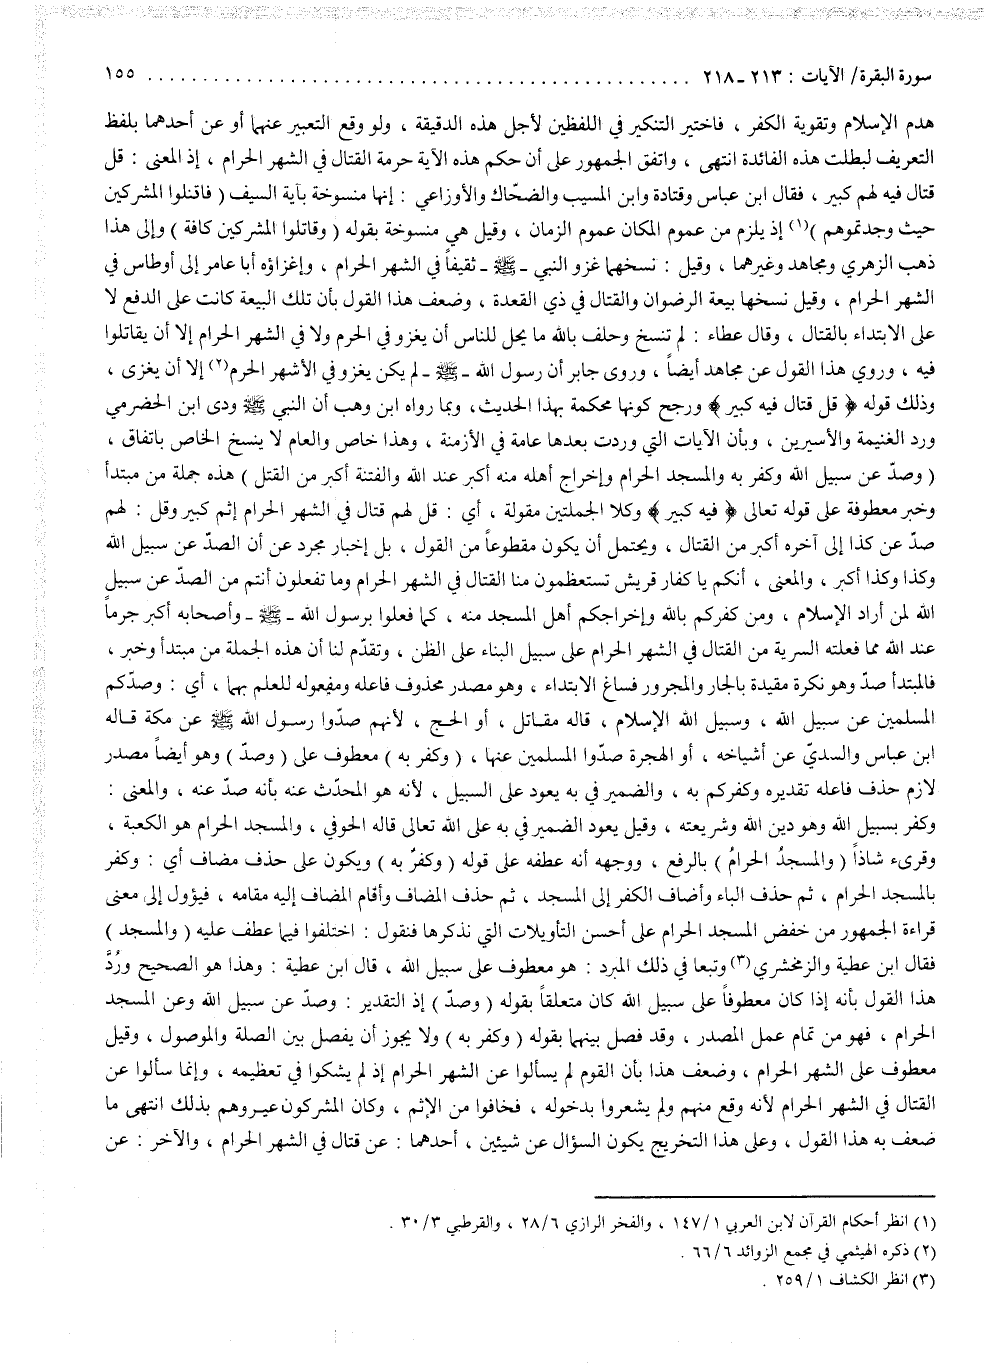 سورة البقرة/ الآيات : ٢١٣ ـ ٢١٨ ........................................................ ١٥٥
هدم الإسلام وتقوية الكفر ، فاختير التنكير في اللفظين لأجل هذه الدقيقة ، ولو وقع التعبير عنهما أو عن أحدهما بلفظ
التعريف لبطلت هذه الفائدة انتهى ، واتفق الجمهور على أن حكم هذه الآية حرمة القتال في الشهر الحرام ، إذ المعنى : قل
قتال فيه لهم كبير ، فقال ابن عباس وقتادة وابن المسيب والضحّاك والأوزاعي : إنها منسوخة بآية السيف ( فاقتلوا المشركين
حيث وجدتموهم )(١) إذ يلزم من عموم المكان عموم الزمان ، وقيل هي منسوخة بقوله ( وقاتلوا المشركين كافة ) وإلى هذا
ذهب الزهري ومجاهد وغيرهما ، وقيل : نسخها غزو النبي ـ ﷺ ـ ثقيفاً في الشهر الحرام ، وإغزاؤه أبا عامر إلى أوطاس في
الشهر الحرام ، وقيل نسخها بيعة الرضوان والقتال في ذي القعدة ، وضعف هذا القول بأن تلك البيعة كانت على الدفع لا
على الابتداء بالقتال ، وقال عطاء : لم تنسخ وحلف بالله ما يحل للناس أن يغزو في الحرم ولا في الشهر الحرام إلا أن يقاتلوا
فيه ، وروي هذا القول عن مجاهد أيضاً ، وروى جابر أن رسول الله ـ ﷺ ـ لم يكن يغزو في الأشهر الحرم(٢) إلا أن يغزى ،
وذلك قوله ﴿ قل قتال فيه كبير ﴾ ورجح كونها محكمة بهذا الحديث، وبما رواه ابن وهب أن النبي ﷺ ودى ابن الحضرمي
ورد الغنيمة والأسيرين ، وبأن الآيات التي وردت بعدها عامة في الأزمنة ، وهذا خاص والعام لا ينسخ الخاص باتفاق ،
( وصدّ عن سبيل الله وكفر به والمسجد الحرام وإخراج أهله منه أكبر عند الله والفتنة أكبر من القتل ) هذه جملة من مبتدأ
وخبر معطوفة على قوله تعالى ﴿ فيه كبير ﴾ وكلا الجملتين مقولة ، أي : قل لهم قتال في الشهر الحرام إثم كبير وقل : لهم
صدّ عن كذا إلى آخره أكبر من القتال ، ويحتمل أن يكون مقطوعاً من القول ، بل إخبار مجرد عن أن الصدّ عن سبيل الله
وكذا وكذا أكبر ، والمعنى ، أنكم يا كفار قريش تستعظمون منا القتال في الشهر الحرام وما تفعلون أنتم من الصدّ عن سبيل
الله لمن أراد الإسلام ، ومن كفركم بالله وإخراجكم أهل المسجد منه ، كما فعلوا برسول الله ـ ﷺ ـ وأصحابه أكبر جرماً
عند الله مما فعلته السرية من القتال في الشهر الحرام على سبيل البناء على الظن ، وتقدّم لنا أن هذه الجملة من مبتدأ وخبر ،
فالمبتدأ صدّ وهو نكرة مقيدة بالجار والمجرور فساغ الابتداء ، وهو مصدر محذوف فاعله ومفعوله للعلم بهما ، أي : وصدّكم
المسلمين عن سبيل الله ، وسبيل الله الإسلام ، قاله مقاتل ، أو الحج ، لأنهم صدّوا رسول الله ﷺ عن مكة قاله
ابن عباس والسديّ عن أشياخه ، أو الهجرة صدّوا المسلمين عنها ، ( وكفر به ) معطوف على ( وصدّ ) وهو أيضاً مصدر
لازم حذف فاعله تقديره وكفركم به ، والضمير في به يعود على السبيل ، لأنه هو المحدّث عنه بأنه صدّ عنه ، والمعنى :
وكفر بسبيل الله وهو دين الله وشريعته ، وقيل يعود الضمير في به على الله تعالى قاله الحوفي ، والمسجد الحرام هو الكعبة ،
وقرىء شاذاً ( والمسجدُ الحرامُ ) بالرفع ، ووجهه أنه عطفه على قوله ( وكفرٌ به ) ويكون على حذف مضاف أي : وكفر
بالمسجد الحرام ، ثم حذف الباء وأضاف الكفر إلى المسجد ، ثم حذف المضاف وأقام المضاف إليه مقامه ، فيؤول إلى معنى
قراءة الجمهور من خفض المسجد الحرام على أحسن التأويلات التي نذكرها فنقول : اختلفوا فيما عطف عليه ( والمسجد )
فقال ابن عطية والزمخشري(٣) وتبعا في ذلك المبرد : هو معطوف على سبيل الله ، قال ابن عطية : وهذا هو الصحيح ورُدَّ
هذا القول بأنه إذا كان معطوفاً على سبيل الله كان متعلقاً بقوله ( وصدّ ) إذ التقدير : وصدّ عن سبيل الله وعن المسجد
الحرام ، فهو من تمام عمل المصدر ، وقد فصل بينهما بقوله ( وكفر به ) ولا يجوز أن يفصل بين الصلة والموصول ، وقيل
معطوف على الشهر الحرام ، وضعف هذا بأن القوم لم يسألوا عن الشهر الحرام إذ لم يشكوا في تعظيمه ، وإنما سألوا عن
القتال في الشهر الحرام لأنه وقع منهم ولم يشعروا بدخوله ، فخافوا من الإثم ، وكان المشركون عيروهم بذلك انتهى ما
ضعف به هذا القول ، وعلى هذا التخريج يكون السؤال عن شيئين ، أحدهما : عن قتال في الشهر الحرام ، والآخر : عن
(١) انظر أحكام القرآن لابن العربي ١٤٧/١ ، والفخر الرازي ٢٨/٦ ، والقرطبي ٣٠/٣ .
(٢) ذكره الهيثمي في مجمع الزوائد ٦٦/٦ .
(٣) انظر الكشاف ٢٥٩/١ .